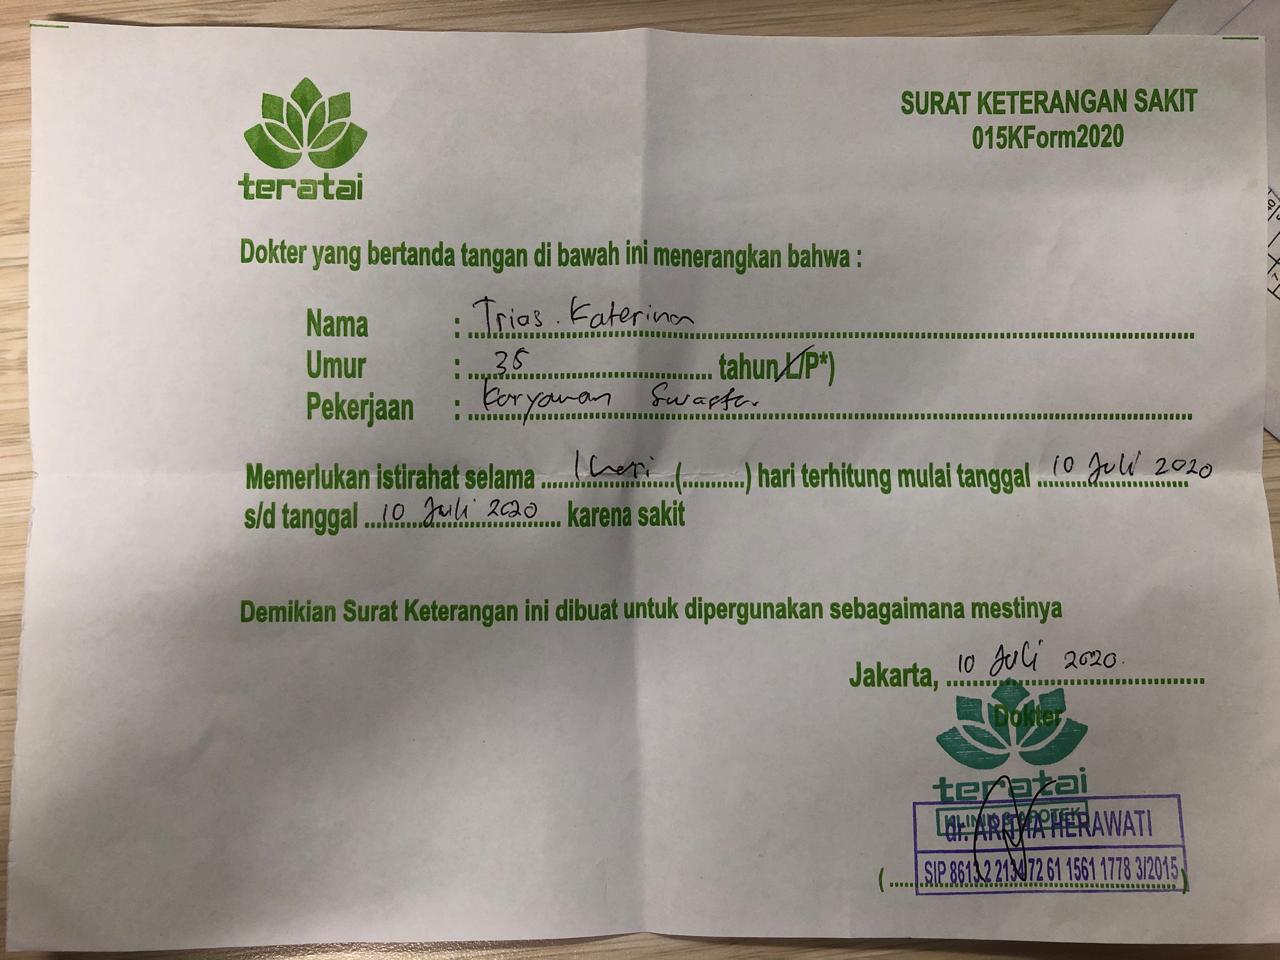 teratai
SURAT KETERANGAN SAKIT
015KForm2020
Dokter yang bertanda tangan di bawah ini menerangkan bahwa :
Nama : Trias. Katerina
Umur : 35 tahun L/P*)
Pekerjaan : Karyawan Swasta
Memerlukan istirahat selama ... 1 hari (..........) hari terhitung mulai tanggal 10 Juli 2020
s/d tanggal 10 Juli 2020 karena sakit
Demikian Surat Keterangan ini dibuat untuk dipergunakan sebagaimana mestinya
Jakarta, 10 Juli 2020.
Dokter
teratai
KLINIK & APOTEK
dr. HERAWATI
SIP 8613 2 2134 72 61 1561 1778 3/2015
(..........)